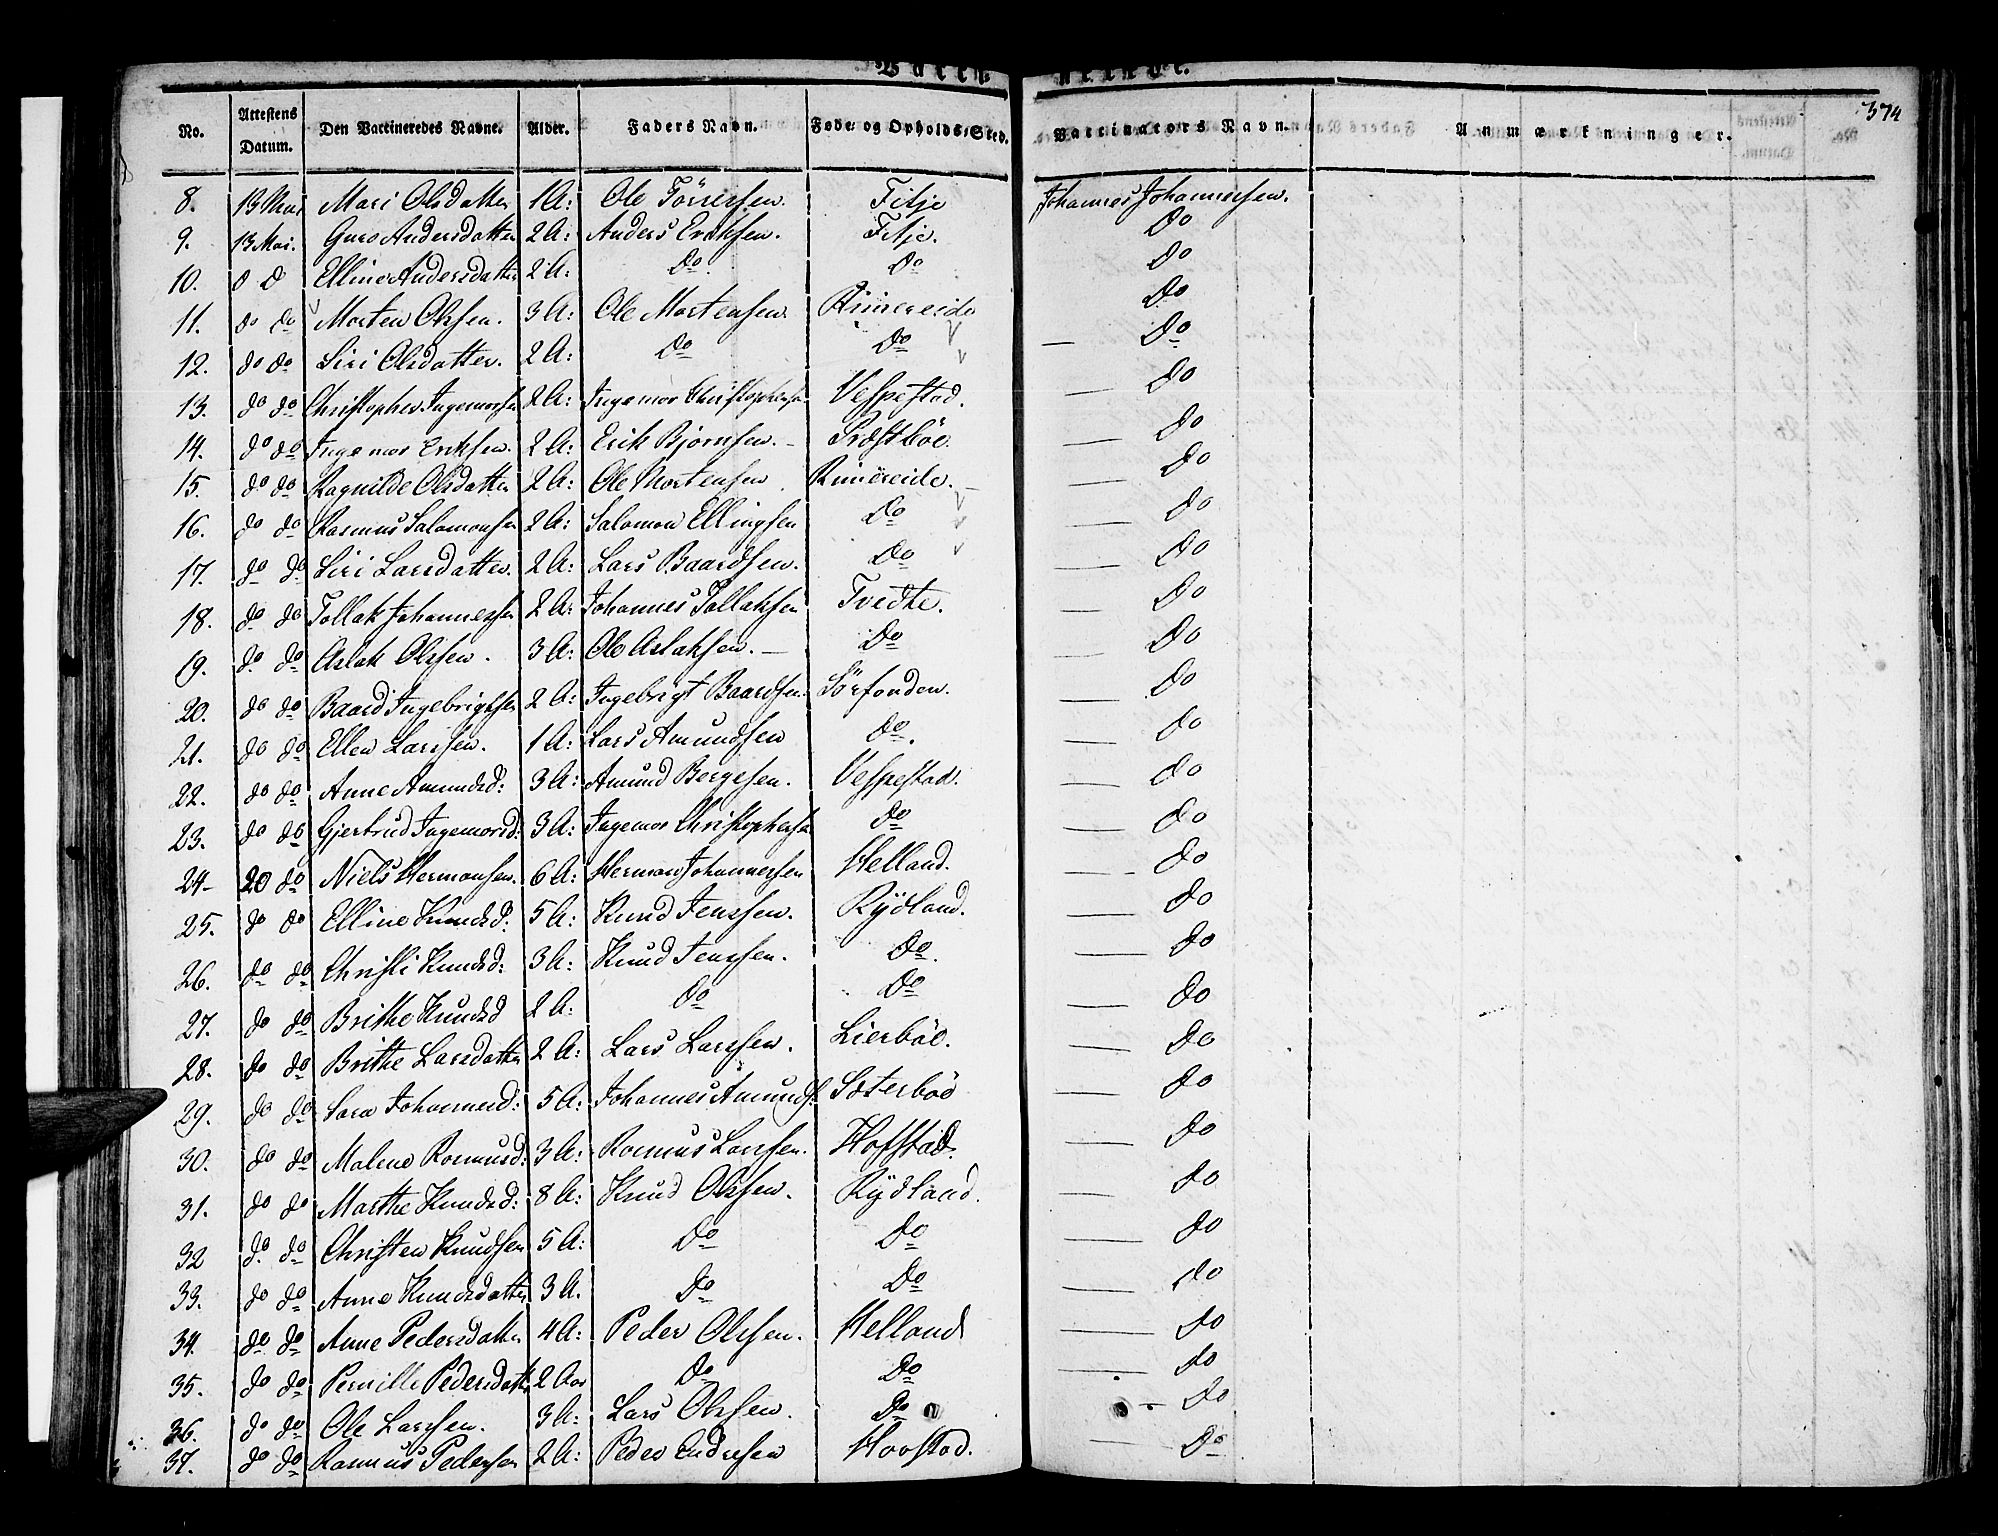 374
No. Attestens Datum. Den Vaccineredes Navne. Alder. Faders Navn. Føde- og Opholds-Sted. Vaccinators Navn. Anmærkninger.
8. 13 Mai Mari Olsdatter 1 A: Ole Tørressen. Fitje Johannes Johannessen.
9. 13 Mai. Guro Andersdatter 2 A: Anders Eriksen. Fitje. Do
10. d d Elline Andersdatter 2 A: Do Do Do
11. do do Morten Olsen. 3 A: Ole Mortensen Rimereide Do
12. do do Siri Olsdatter. 2 A: Do Do — Do
13. do do Christopher Ingemorsen 2 A: Ingemor Christophersen Vespestad. — Do
14. do do Ingemor Eriksen. 2 A: Erik Bjørnsen. – Præstbøe. — Do
15. do do Ragnilde Olsdatter 2 A: Ole Mortensen. Rimereide. — Do
16. do do Rasmus Salomonsen 2 A: Salomon Ellingsen Do — Do
17. do do Siri Larsdatter. 2 A: Lars Baardsen. Do — Do
18. do do Tollak Johannessen 2 A: Johannes Tollaksen Tvedte. — Do
19. do do Aslak Olssen. 3 A: Ole Aslaksen. — Do — Do
20. do do Baard Ingebrigtsen 2 A: Ingebrigt Baardsen. Sørfonden. — Do
21. do do Ellen Larssen. 1 A: Lars Amundsen do. — do
22. do do Anne Amundsd: 3 A: Amund Børgesen. Vespestad. — do
23. do do Gjertrud Ingemorsd: 3 A: Ingemor Christophersen do — do
24– 20 do Niels Hermansen. 6 A: Herman Johannessen Helland. — do
25. do do Elline Knudsd: 5 A: Knud Jenssen. Rydland. — do
26. do do Christi Knudsd: 3 A: Knud Jenssen. Do. — do
27. do do Brithe Knudsd 2 A: Do Do — do
28. do do Brithe Larsdatter 2 A: Lars Larssen. Lierbøe. — do
29. do do Sara Johannesd: 5 A: Johannes Amunds: Sæterbøe — do
30. do do Malene Rasmusd: 3 A: Rasmus Larssen. Hofstad. — do
31. do do Marthe Knudsd: 8 A: Knud Olssen. Rydland. — do
32 do do Christen Knudsen 5 A: Do Do — do
33. do do Anne Knudsdatter 3 A. Do Do — do
34. do do Anne Pedersdatter 4 A: Peder Olssen. Helland — do
35. do do Pernille Pedersdatter 2 Aar Do Do — do
36. do do Ole Larssen. 3 A: Lars Olssen. Do – do
37. do do Rasmus Pedersen 2 A: Peder Endresen Hovstad. — Do